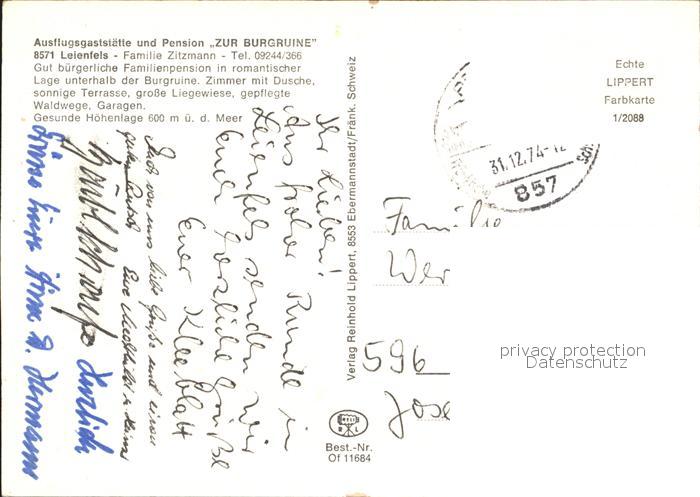 Ausflugsgaststätte und Pension „ZUR BURGRUINE"
8571 Leienfels - Familie Zitzmann - Tel. 09244/366
Gut bürgerliche Familienpension in romantischer
Lage unterhalb der Burgruine. Zimmer mit Dusche,
sonnige Terrasse, große Liegewiese, gepflegte
Waldwege, Garagen.
Gesunde Höhenlage 600 m ü. d. Meer
Ihr Lieben!
Aus froher Runde in
Leienfels senden wir
Euch herzliche Grüße
Euer Kleeblatt
Auch von uns liebe Grüße und einen
guten Rutsch Eure
Herzlich
Verlag Reinhold Lippert, 8553 Ebermannstadt/Fränk. Schweiz
Echte
LIPPERT
Farbkarte
1/2088
31.12.74-12
857
Familie
Wer
596
Jose
privacy protection
Datenschutz
Best.-Nr.
Of 11684